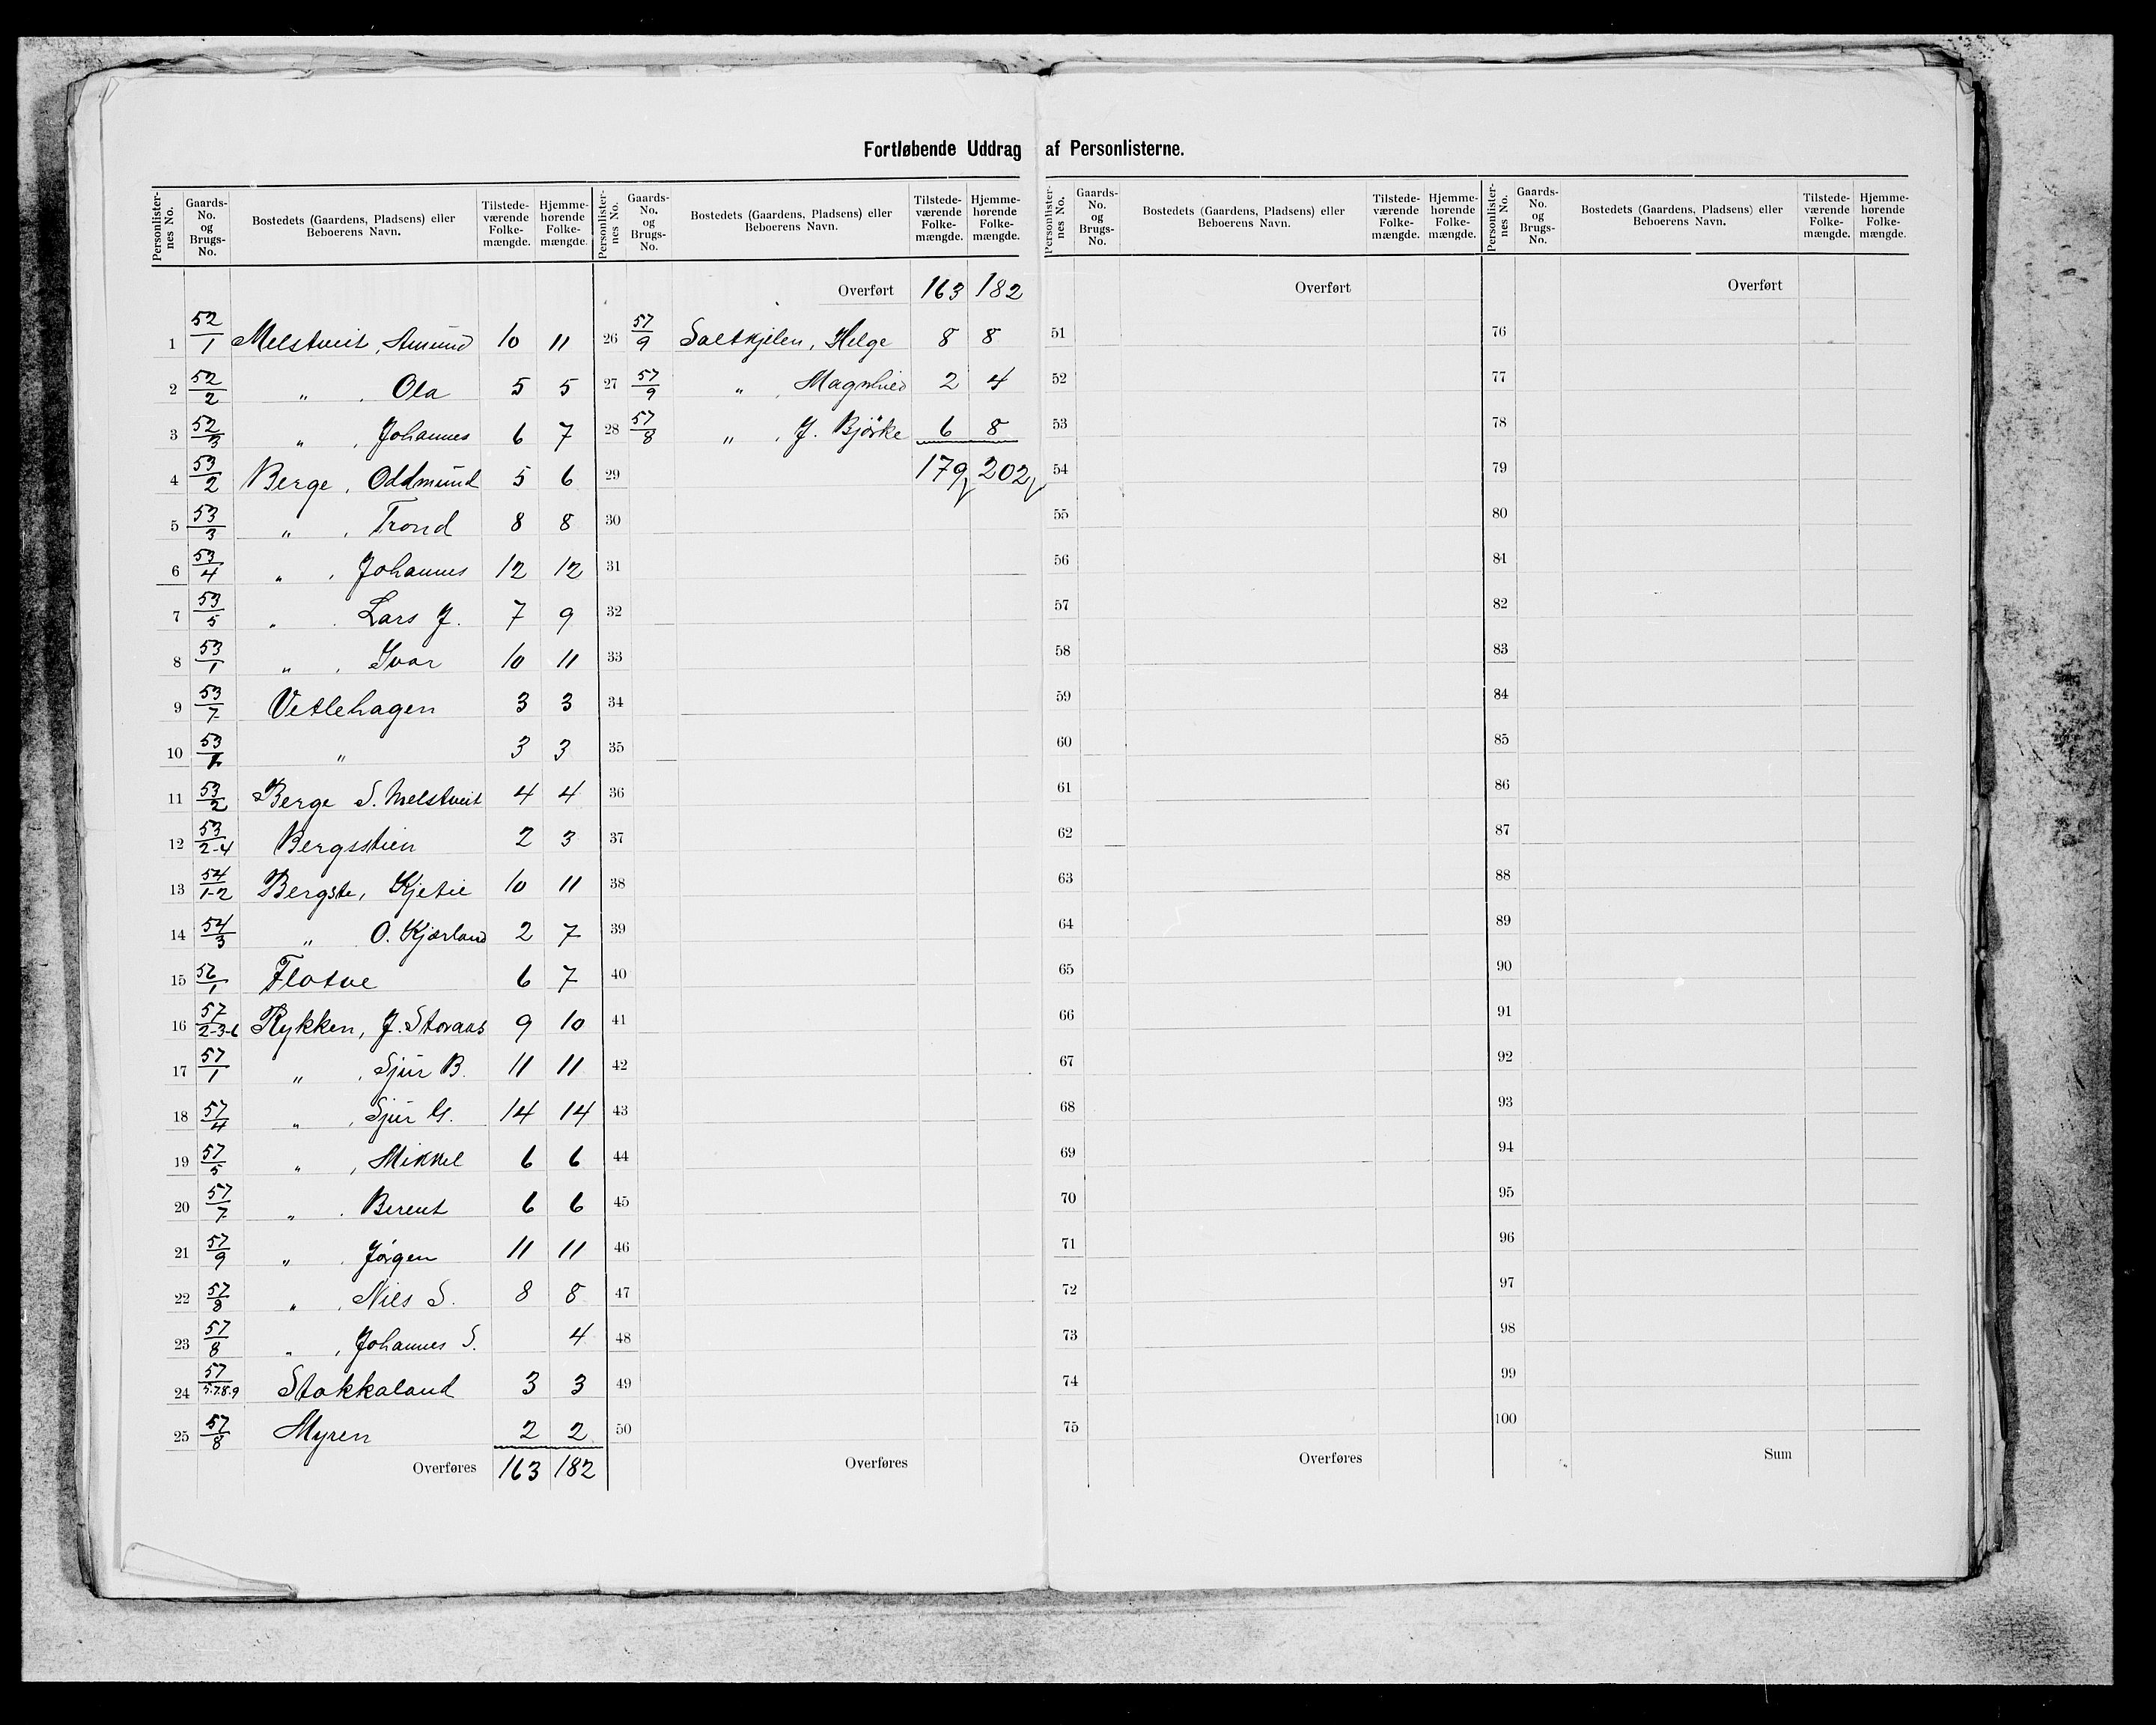 Fortløbende Uddrag af Personlisterne.
Personlister-nes No. | Gaards-No. og Brugs-No. | Bostedets (Gaardens, Pladsens) eller Beboerens Navn. | Tilstede-værende Folke-mængde. | Hjemme-hørende Folke-mængde.
1 52/1 Melstveit, Amund 10 11
2 52/2 „ , Ola 5 5
3 52/3 „ , Johannes 6 7
4 53/2 Berge, Oddmund 5 6
5 53/3 „ , Trond 8 8
6 53/4 „ , Johannes 12 12
7 53/5 „ , Lars J. 7 9
8 53/1 „ , Ivar 10 11
9 53/7 Vetlehagen 3 3
10 53/ „ 3 3
11 53/2 Berge S. Melstveit 4 4
12 53/2-4 Bergsstien 2 3
13 54/1-2 Bergste, Kjetil 10 11
14 54/3 „ O. Kjærland 2 7
15 56/1 Flotve 6 7
16 57/2-3-6 Rykken, J. Storaas 9 10
17 57/1 „ , Sjur B. 11 11
18 57/4 „ , Sjur G. 14 14
19 57/5 „ , Mikkel 6 6
20 57/7 „ , Berent 6 6
21 57/9 „ , Jörgen 11 11
22 57/8 „ , Nils S. 8 8
23 57/8 „ , Johannes S. 4
24 57/5.7.8.9 Stakkaland 3 3
25 57/8 Myren 2 2
Overføres 163 182
Personlister-nes No. | Gaards-No. og Brugs-No. | Bostedets (Gaardens, Pladsens) eller Beboerens Navn. | Tilstede-værende Folke-mængde. | Hjemme-hørende Folke-mængde.
Overført 163 182
26 57/9 Saltkjelen, Helge 8 8
27 57/9 „ , Magnhild 2 4
28 57/8 „ , J. Björke 6 8
29 179 202
30
31
32
33
34
35
36
37
38
39
40
41
42
43
44
45
46
47
48
49
50
Overføres
Personlister-nes No. | Gaards-No. og Brugs-No. | Bostedets (Gaardens, Pladsens) eller Beboerens Navn. | Tilstede-værende Folke-mængde. | Hjemme-hørende Folke-mængde.
Overført
51
52
53
54
55
56
57
58
59
60
61
62
63
64
65
66
67
68
69
70
71
72
73
74
75
Overføres
Personlister-nes No. | Gaards-No. og Brugs-No. | Bostedets (Gaardens, Pladsens) eller Beboerens Navn. | Tilstede-værende Folke-mængde. | Hjemme-hørende Folke-mængde.
Overført
76
77
78
79
80
81
82
83
84
85
86
87
88
89
90
91
92
93
94
95
96
97
98
99
100
Sum